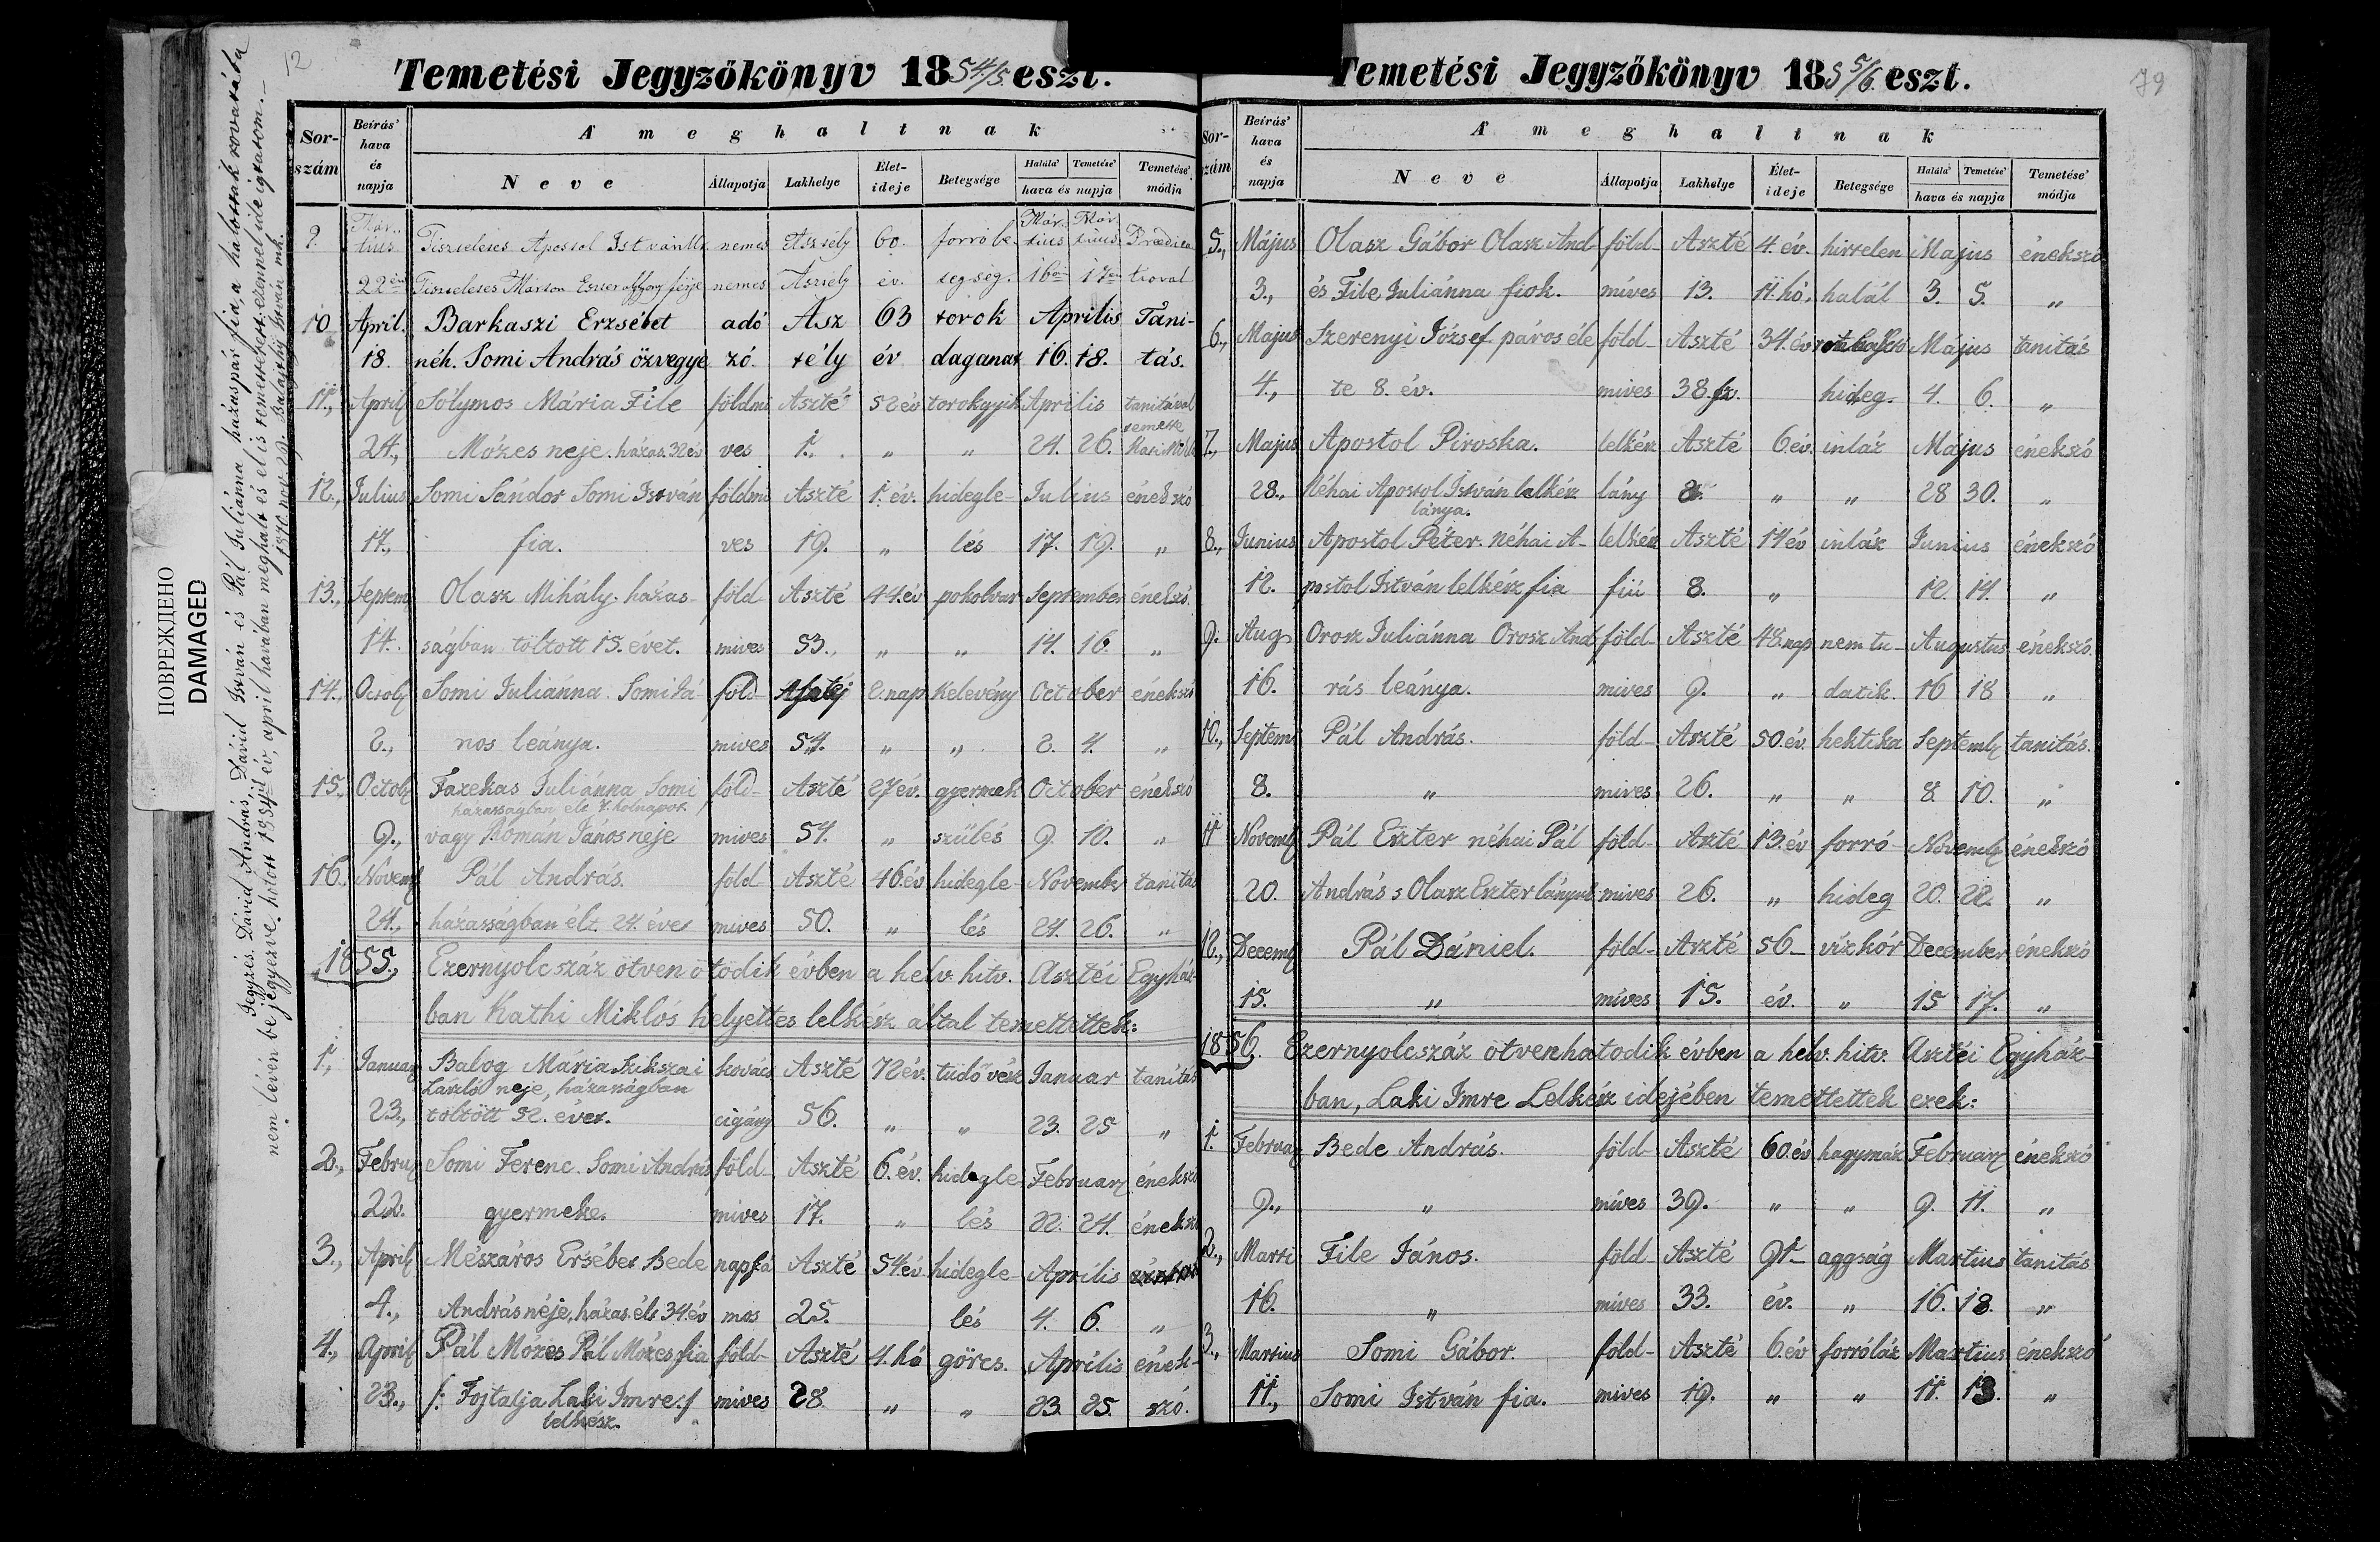 12
Temetési Jegyzőkönyv 1854/5. eszt.
Sorszám Beírás' hava és napja A' meghaltnak
Neve Állapotja Lakhelye Élet-ideje Betegsége Halála' Temetése' hava és napja Temetése' módja
9. Mártius Tiszteletes Apostol István nemes Asztély 60. forró be Mártius Mártius
22én Tiszteletes Márton Eszter férje nemes Asztély év. tegség. 16án 17én
10 April. Barkaszi Erzsébet adó Asz 63 torok Április Tani-
18. néh. Somi András özvegye zó. tély év daganat 16. 18. tás.
11., April Sólymos Mária File földmi Aszté 52 év torokgyík Április tanitával
24., Mózes neje. házas. 32 év ves 1. „ „ 24. 26. temette
12., Julius Somi Sándor Somi István földmi Aszté 1. év. hidegle- Julius énekszó
17., fia. ves 19. „ lés 17. 19. „
13., Septem Olasz Mihály. házas- föld- Aszté 44. év pokolvar September énekszó.
14. ságban töltött 15. évet. mives 53., „ „ 14. 16. „
14., Octob Somi Juliánna. Somi Já föld- 2. nap Kelevény October énekszó
2., nos leánya. mives 54. „ „ 2. 4. „
15., Octob Fazekas Juliánna Somi föld- Aszté 27 év. gyermek October énekszó
házasságban élt 7. holnapot.
9., vagy Román János neje mives 54. „ szülés 9. 10. „
16., Novemb Pál András. föld Aszté 46. év hidegle- November tanitás
24., házasságban élt. 24. évet mives 50. „ lés 24. 26. „
1855., Ezernyolcszáz ötven ötödik évben a helv. hitv. Asztéi Egyház-
ban Kathi Miklós helyettes lelkész által temettettek:
1., Januar Balog Mária Szikszai kovács Aszté 72 év. tüdővész Januar tanitás
László neje, házasságban
23., töltött 52. évet. cigány 56. „ „ 23. 25 „
2., Febru Somi Ferenc. Somi András föld- Aszté 6. év. hidegle Februar énekszó
22. gyermeke. mives 17. „ lés 22. 24. énekszó
3., April Mészáros Ersébet Bede napszá Aszté 54. év hidegle- Április
4., András néje, házas. élt 34. év mos 25. lés 4. 6. „
4., April Pál Mózes Pál Mózes fia föld- Aszté 4. hó görcs. Április ének-
23., /: Fojtatja Laki Imre :/ mives 28. „ „ 23. 25. szó.
lelkész.
Jegyzés. Dávid András, Dávid István és Pál Juliánna házaspár fia, a halottak rovatába
nem lévén bejegyezve. hólott 1854ik év, april havában meghalt és el is temettetett. ezennel ide igtatom.—
1870 nov. 29. Baláshy István mk.
ПОВРЕЖДЕНО
DAMAGED
79
Temetési Jegyzőkönyv 1855/6. eszt.
Sor-szám Beírás' hava és napja A' meghaltnak
Neve Állapotja Lakhelye Élet-ideje Betegsége Halála' Temetése' hava és napja Temetése' módja
5., Május Olasz Gábor Olasz And- föld- Aszté 4. év. hirtelen Majus énekszó
3., és File Juliánna fiok. míves 13. 11. hó, halál 3. 5. „
6., Majus Szerenyi József. páros éle föld- Aszté 34. év Május tanitás
4., te 8. év. mives 38. hideg. 4. 6. „
7., Majus Apostol Piroska. lelkész Aszté 6 év. inláz Május énekszó
28., Néhai Apostol István lelkész lány 8. „ „ 28 30. „
lánya.
8., Junius Apostol Péter. Néhai A- lelkész Aszté 14 év inláz Junius énekszó
12. postol István lelkész fia fiú 8. „ 12. 14. „
9. Aug Orosz Juliánna Orosz And föld- Aszté 48. nap nem tu- Augustus énekszó.
16. rás leánya. mives 9. „ datik. 16 18 „
10., Septem Pál András. föld- Aszté 50. év. hektika Septemb tanitás.
8. „ mives 26. „ „ 8. 10. „
11 Novemb Pál Eszter néhai Pál föld- Aszté 13. év forró Novemb énekszó
20. András s Olasz Eszter lányuk mives 26. „ hideg 20. 22. „
12., Decemb Pál Dániel. föld- Aszté 56- vízkór December énekszó
15. „ míves 15. év. „ 15 17. „
1856. Ezernyolcszáz ötvenhatodik évben a helv. hitv. Asztéi Egyház-
ban, Laki Imre Lelkész idejében temettettek ezek:
1. Februar Bede András. föld- Aszté 60. év hagymáz Februar énekszó
9., „ míves 39. „ „ 9. 11. „
2., Marti File János. föld- Aszté 91- aggság Martius tanitás
16. „ míves 33. év. „ 16. 18. „
3., Martius Somi Gábor. föld- Aszté 6. év forróláz Martius énekszó
11., Somi István fia. mives 19. „ „ 11. 13. „